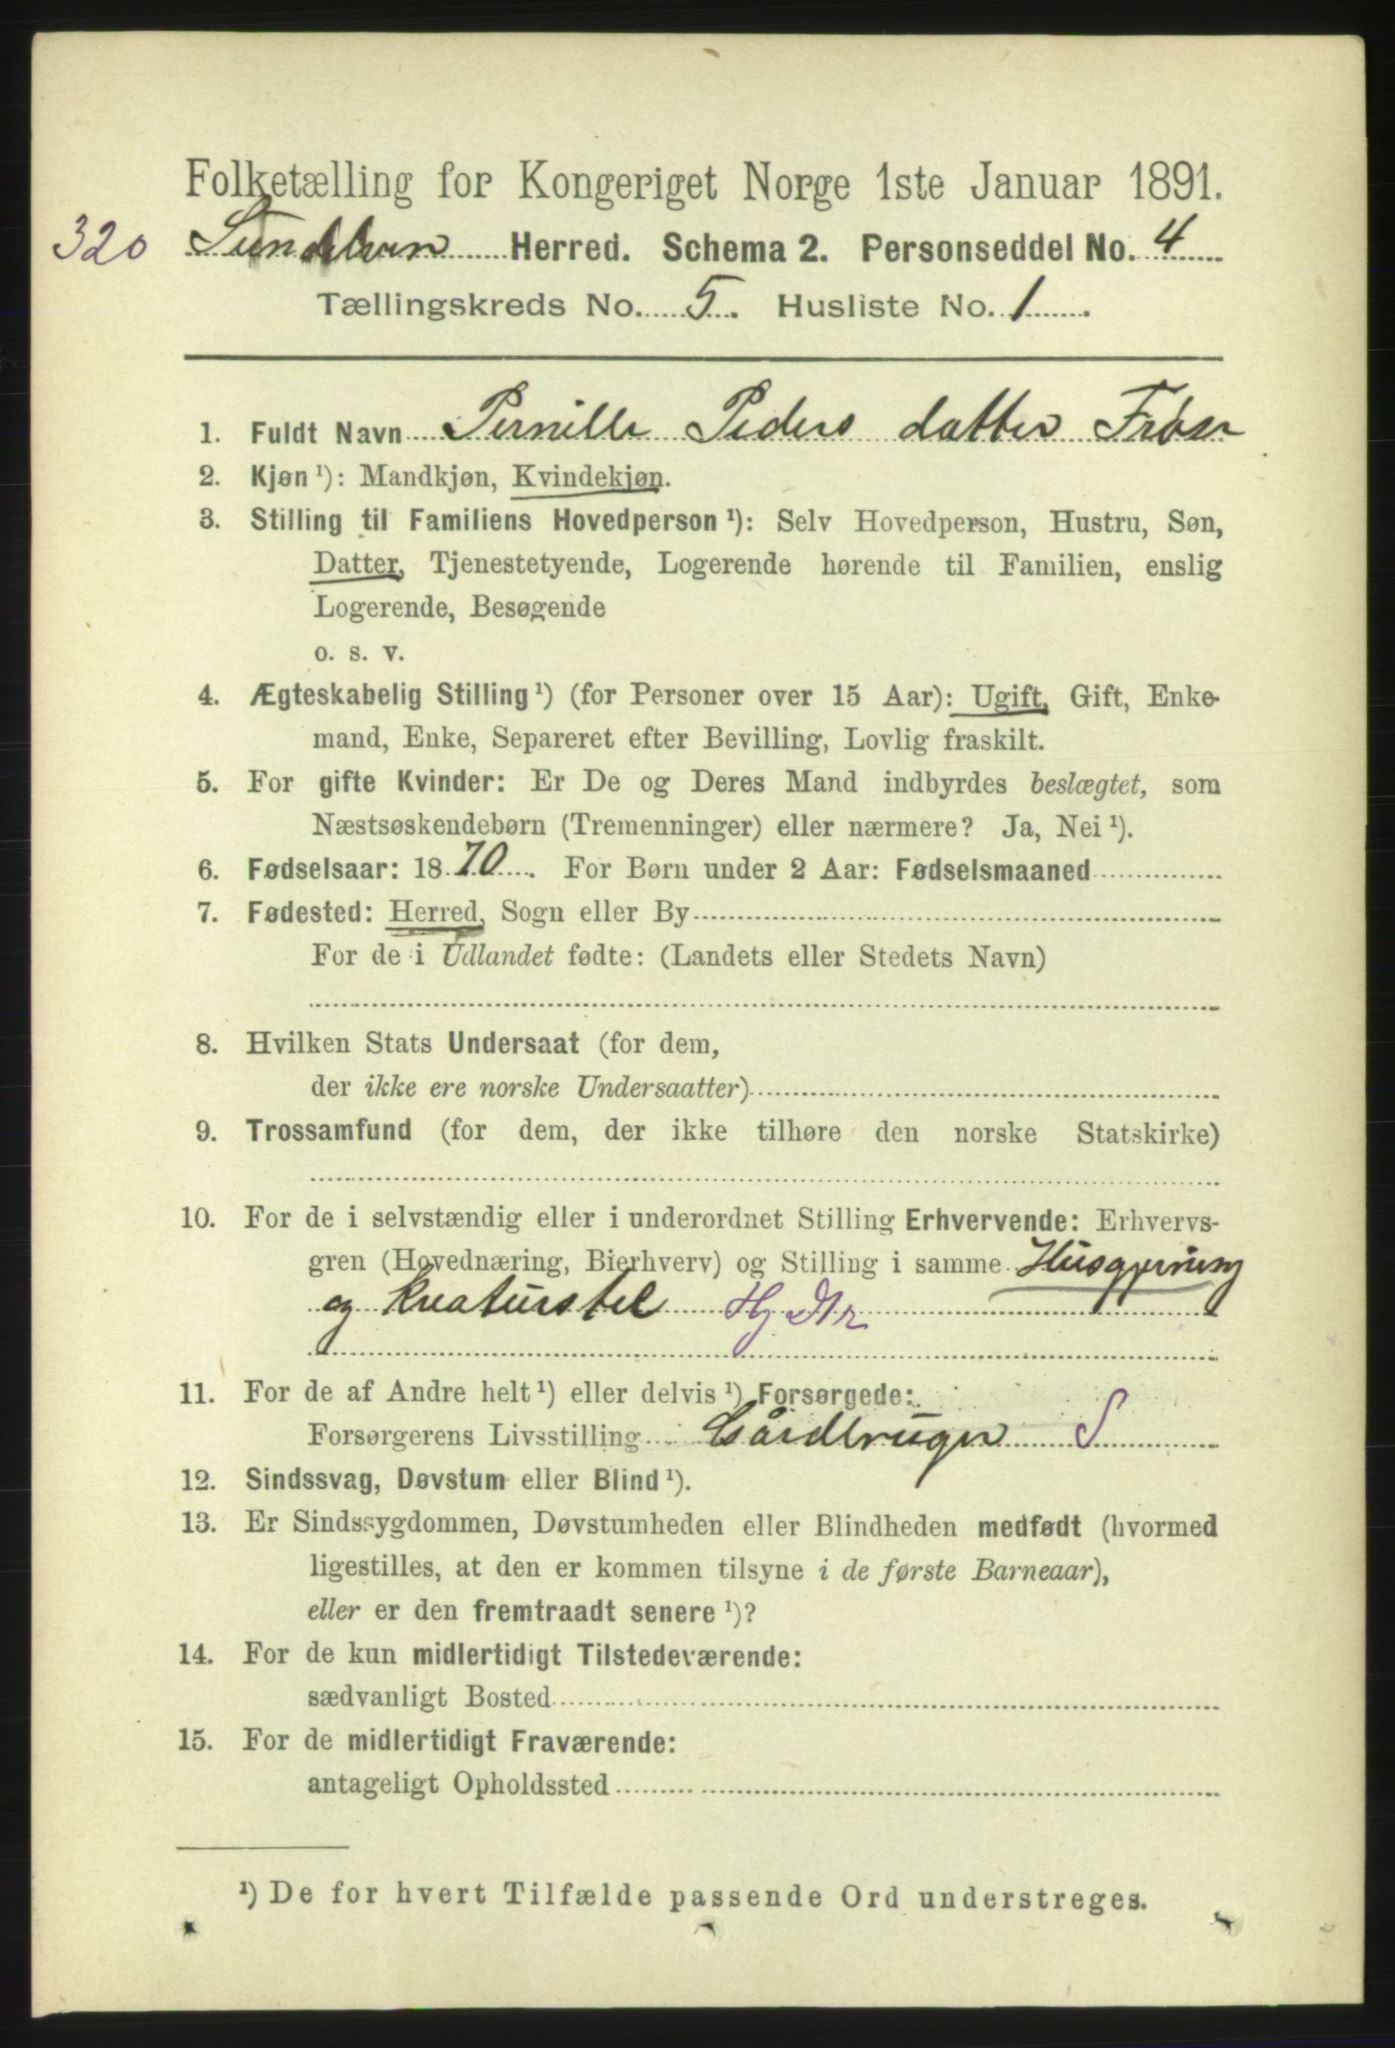 Folketælling for Kongeriget Norge 1ste Januar 1891.
320 Sundalen Herred. Schema 2. Personseddel No. 4
Tællingskreds No. 5. Husliste No. 1.
1. Fuldt Navn Pernille Peders datter Frøse
2. Kjøn ¹): Mandkjøn, Kvindekjøn.
3. Stilling til Familiens Hovedperson ¹): Selv Hovedperson, Hustru, Søn,
Datter, Tjenestetyende, Logerende hørende til Familien, enslig
Logerende, Besøgende
o. s. v.
4. Ægteskabelig Stilling ¹) (for Personer over 15 Aar): Ugift, Gift, Enke-
mand, Enke, Separeret efter Bevilling, Lovlig fraskilt.
5. For gifte Kvinder: Er De og Deres Mand indbyrdes beslægtet, som
Næstsøskendebørn (Tremenninger) eller nærmere? Ja, Nei ¹).
6. Fødselsaar: 1870. For Børn under 2 Aar: Fødselsmaaned
7. Fødested: Herred, Sogn eller By
For de i Udlandet fødte: (Landets eller Stedets Navn)
8. Hvilken Stats Undersaat (for dem,
der ikke ere norske Undersaatter)
9. Trossamfund (for dem, der ikke tilhøre den norske Statskirke)
10. For de i selvstændig eller i underordnet Stilling Erhvervende: Erhvervs-
gren (Hovednæring, Bierhverv) og Stilling i samme Husgjerning
og Kreaturstel Hj
11. For de af Andre helt ¹) eller delvis ¹) Forsørgede:
Forsørgerens Livsstilling Gårdbruger S
12. Sindssvag, Døvstum eller Blind ¹).
13. Er Sindssygdommen, Døvstumheden eller Blindheden medfødt (hvormed
ligestilles, at den er kommen tilsyne i de første Barneaar),
eller er den fremtraadt senere ¹)?
14. For de kun midlertidigt Tilstedeværende:
sædvanligt Bosted
15. For de midlertidigt Fraværende:
antageligt Opholdssted
¹) De for hvert Tilfælde passende Ord understreges.